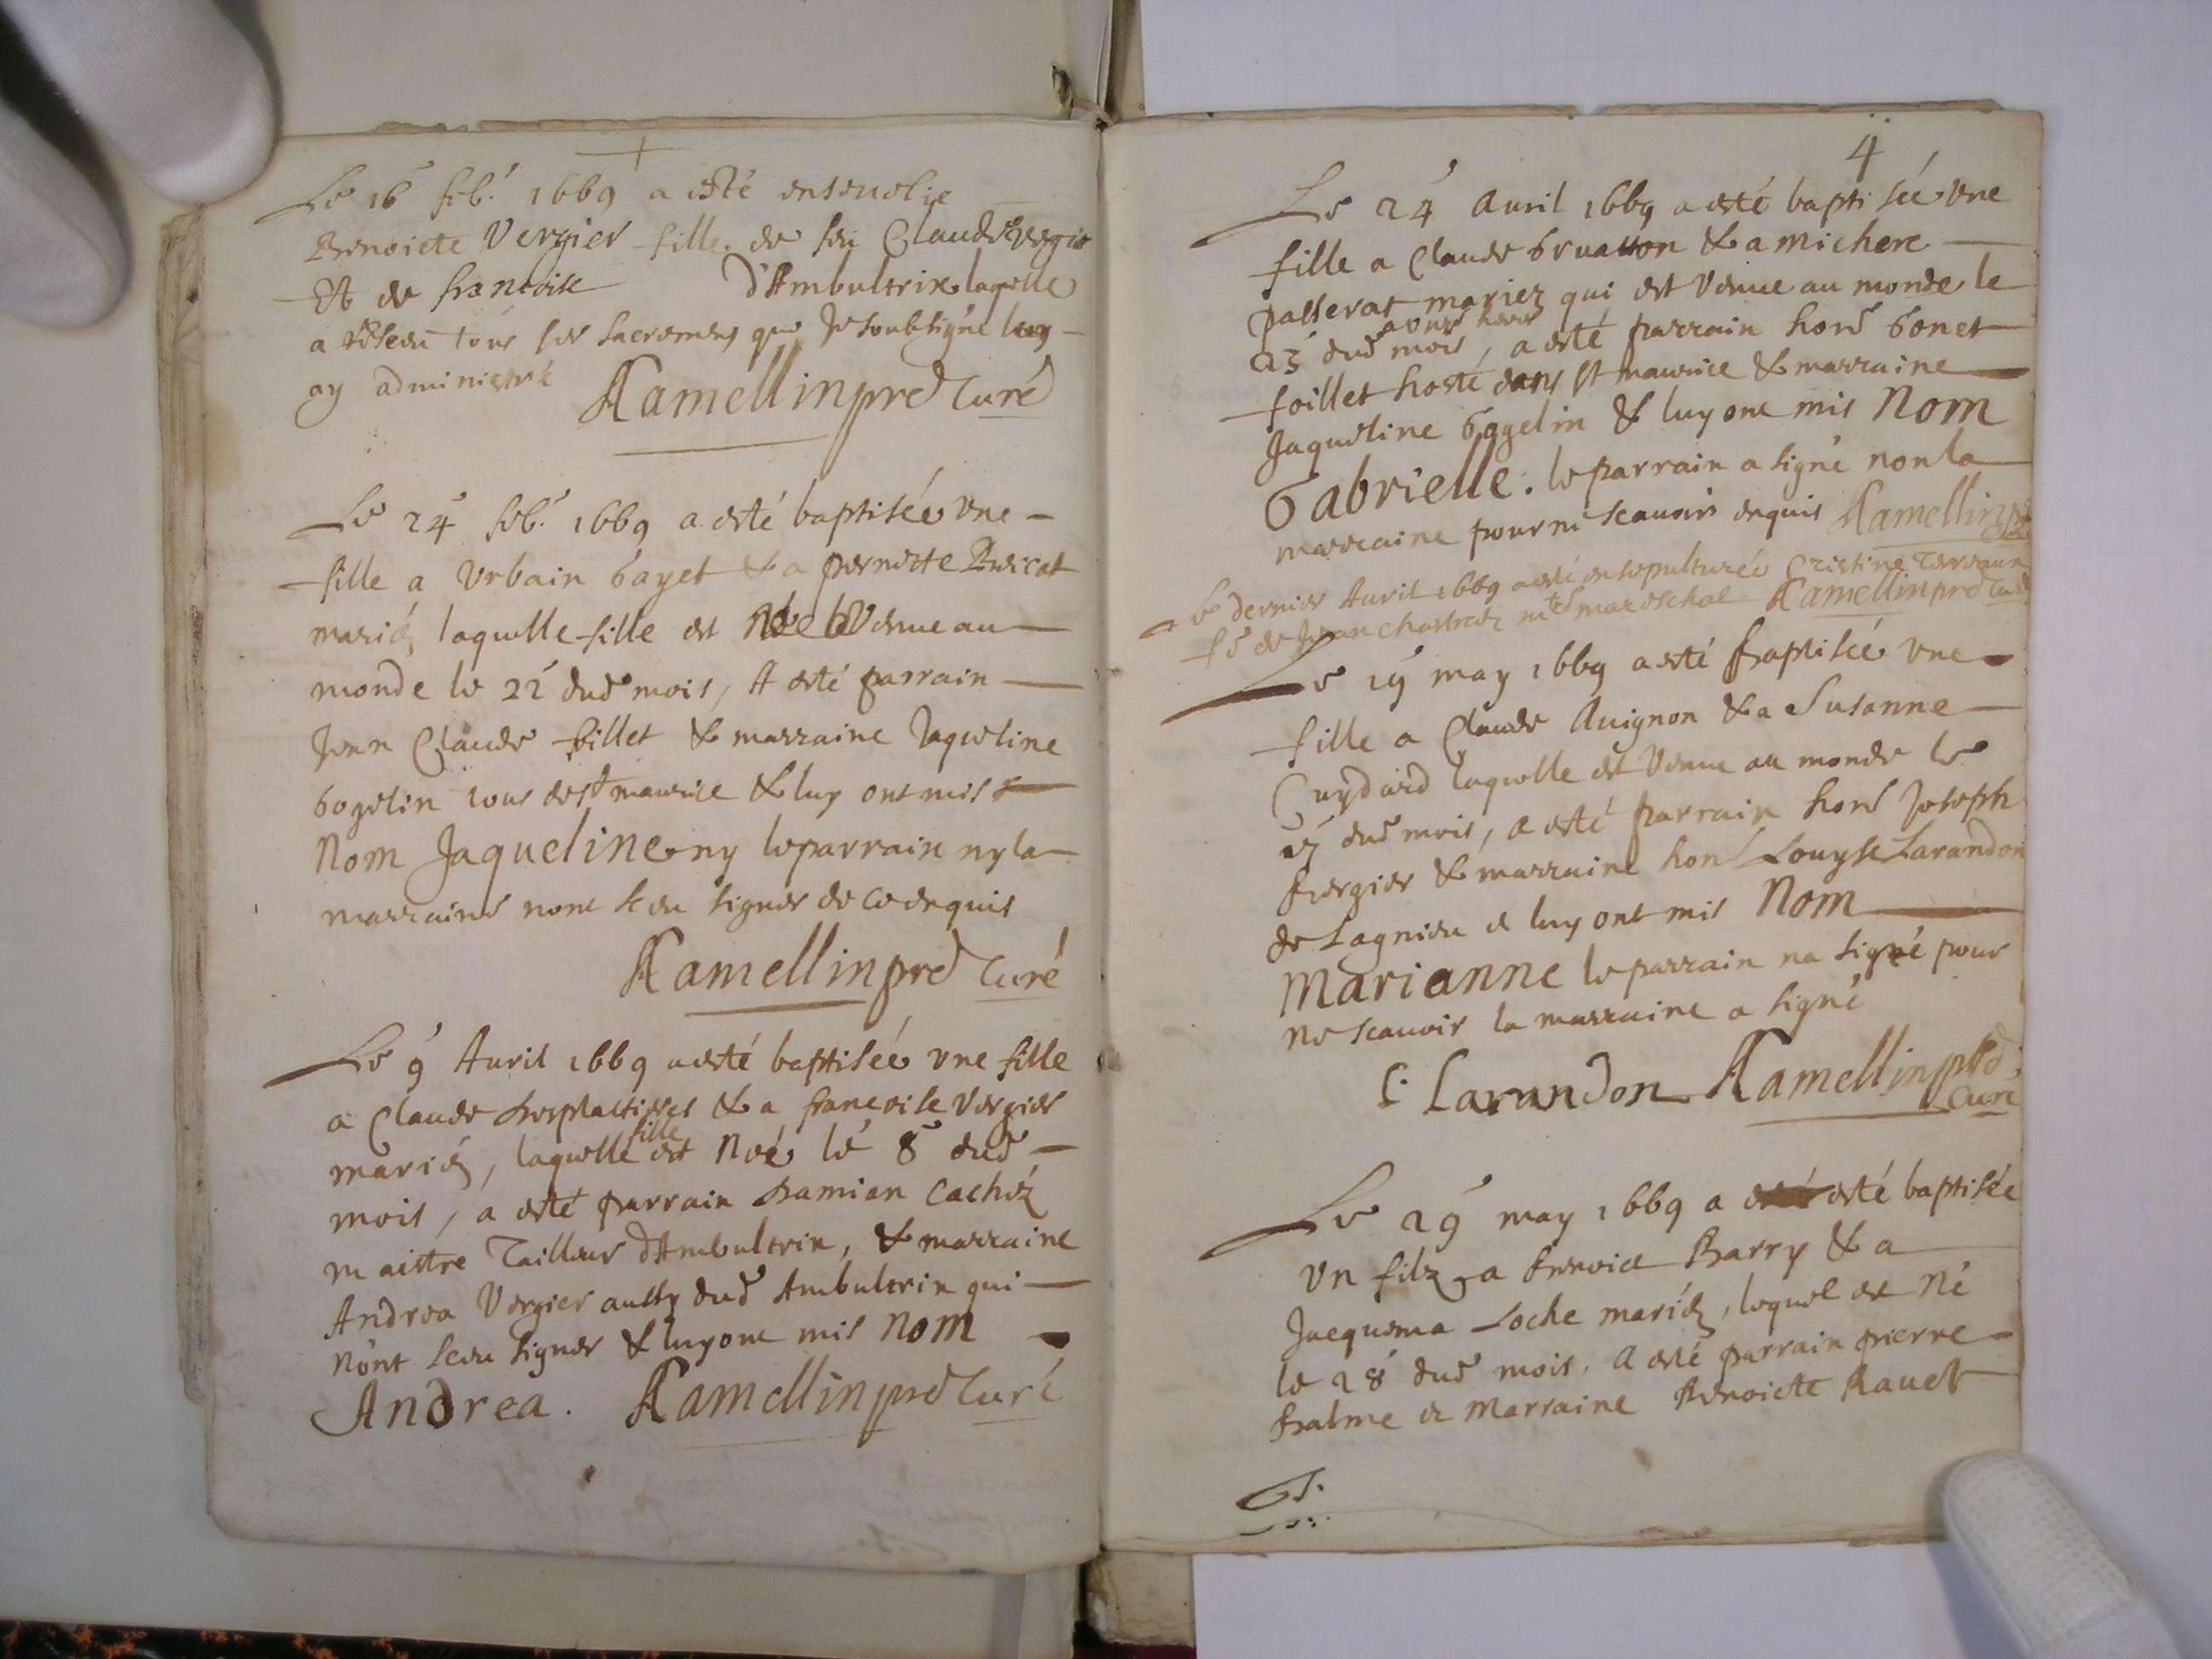 Le 16 feb. 1669 a esté ensevelie
Benoicte Vergier fille de feu Claude Vergier
Et de francoise d'Ambultrix laquelle
a receu tous les sacremens que Je soubsigné luy
ay administré Kamellin pred curé
Le 24 feb. 1669 a esté baptisée une
fille a Urbain bayet & a pernette
mariéz laquelle fille est venue au
monde le 22 dud mois, A esté parrain
Jean Claude fillet & marraine Jaqueline
bogelin tous de st maurice & luy ont mis
Nom Jaqueline ny le parrain ny la
marraine nont sceu signer de ce enquis
Kamellin pred curé
Le 9 Avril 1669 a esté baptiséé une fille
a Claude & a francoise Vergier
mariéz, laquelle fille est Néé le 8 dud
mois, a esté parrain Damian Cachéz
maistre Tailleur d'Ambultrix, & marraine
Andrea Vergier aussy dud Ambultrix qui
n'ont sceu signer & luy ont mis Nom
Andrea. Kamellin pred Curé
4
Le 24 Avril 1669 a esté baptisée une
fille a Claude bruatton & a michere
passerat mariez qui est venue au monde le
23 dud mois, a esté parrain hond bonet
foillet hoste dans st maurice & marraine
Jaqueline bogelin & luy ont mis Nom
Gabrielle. le parrain a signé non la
marraine pour ni scavoir enquis Kamellin
Le dernier Avril 1669 a esté ensepulturéé Cristine
fe de Jean mareschal Kamellin pred curé
Le 19 may 1669 a esté baptisée une
fille a Claude Avignon & a Susanne
Guydard laquelle est venue au monde le
dud mois, a esté parrain hond Joseph
bergier & marraine hond Louyse Larandon
de Lagnieu & luy ont mis Nom
Marianne le parrain na signé pour
ne scavoir la marraine a signé
Larandon Kamellin pred.
curé
Le 29 may 1669 a esté baptisée
Un filz a benoict Barry & a
Jaequema Loche mariéz, lequel est Né
le 28 dud mois. A esté parrain pierre
balme & Marraine Benoicte Ravet